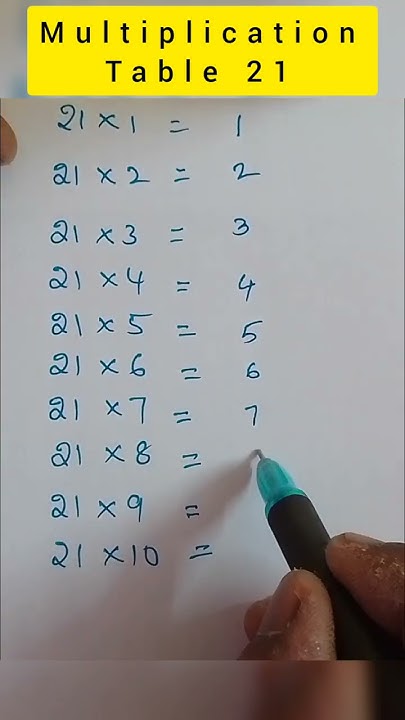 Multiplication
Table 21
21 × 1 = 1
21 × 2 = 2
21 × 3 = 3
21 × 4 = 4
21 × 5 = 5
21 × 6 = 6
21 × 7 = 7
21 × 8 =
21 × 9 =
21 × 10 =